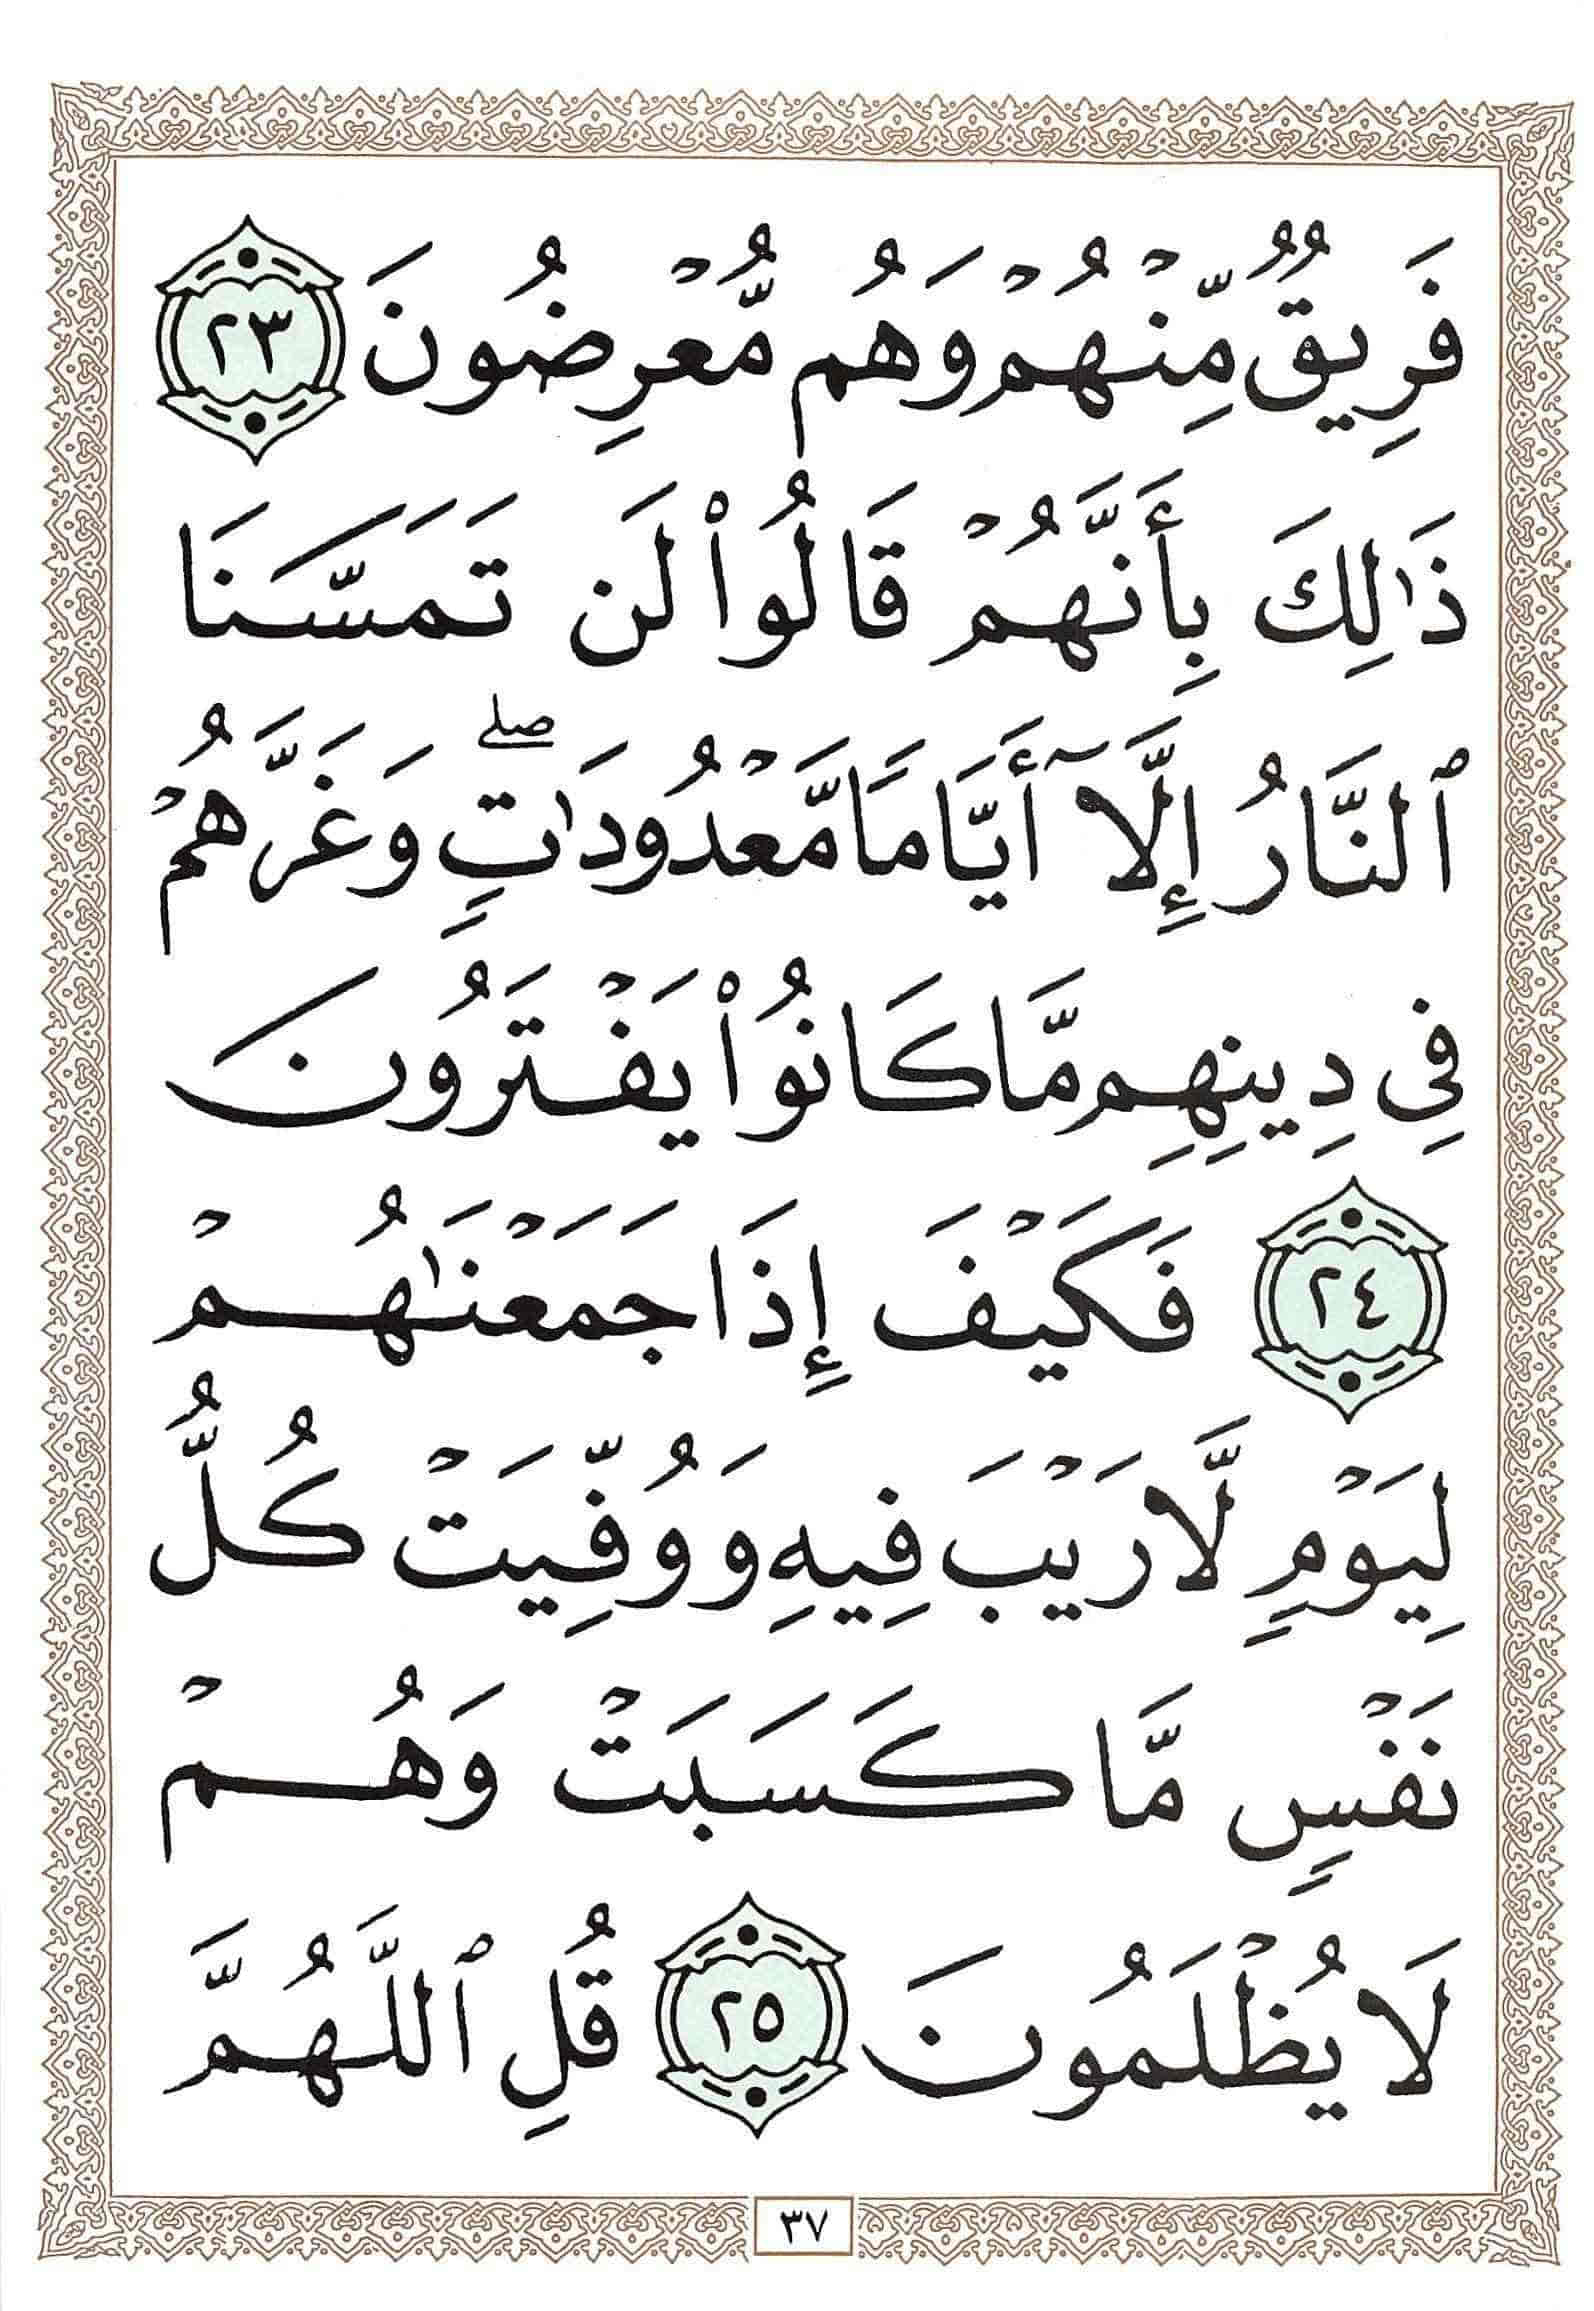 فَرِيقٌ مِّنْهُمْ وَهُم مُّعْرِضُونَ ٢٣
ذَٰلِكَ بِأَنَّهُمْ قَالُوا۟ لَن تَمَسَّنَا
ٱلنَّارُ إِلَّآ أَيَّامًا مَّعْدُودَٰتٍ ۖ وَغَرَّهُمْ
فِى دِينِهِم مَّا كَانُوا۟ يَفْتَرُونَ
٢٤ فَكَيْفَ إِذَا جَمَعْنَٰهُمْ
لِيَوْمٍ لَّا رَيْبَ فِيهِ وَوُفِّيَتْ كُلُّ
نَفْسٍ مَّا كَسَبَتْ وَهُمْ
لَا يُظْلَمُونَ ٢٥ قُلِ ٱللَّهُمَّ
٣٧